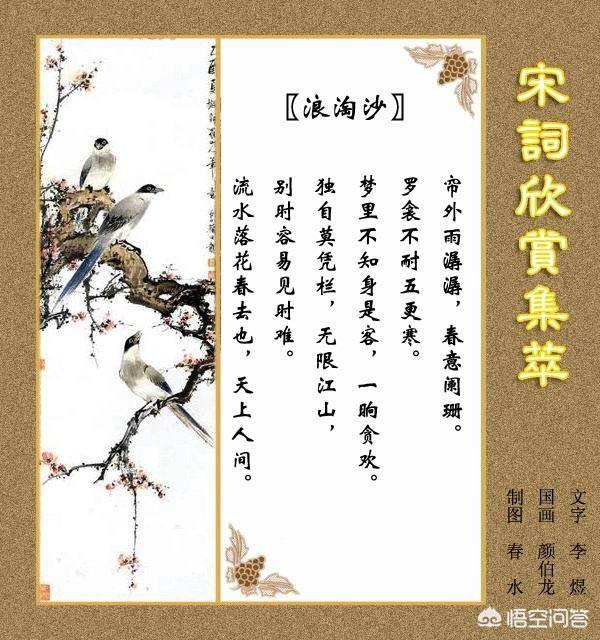 宋詞欣賞集萃
〖浪淘沙〗
帘外雨潺潺，春意阑珊。
罗衾不耐五更寒。
梦里不知身是客，一晌贪欢。
独自莫凭栏，无限江山，
别时容易见时难。
流水落花春去也，天上人间。
文字 李 煜
国画 颜伯龙
制图 春 水
悟空问答